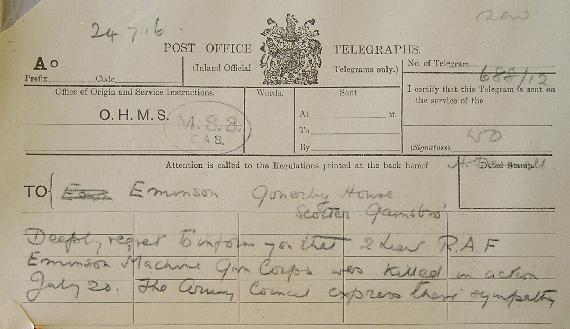 24.7.16.
POST OFFICE TELEGRAPHS.
Ao (Inland Official Telegrams only.) No. of Telegram
Prefix Code 688/12
Office of Origin and Service Instructions. Words. Sent I certify that this Telegram is sent on
the service of the
O.H.M.S. M.S.3. At M.
CAS. To WO
By (Signature)
Attention is called to the Regulations printed at the back hereof Dated Stamp.
TO Eminson Gonerby House
Scotter Gainsbro'
Deeply regret to inform you that 2 Lieut R.A.F
Eminson Machine Gun Corps was killed in action
July 20. The Army Council express their sympathy